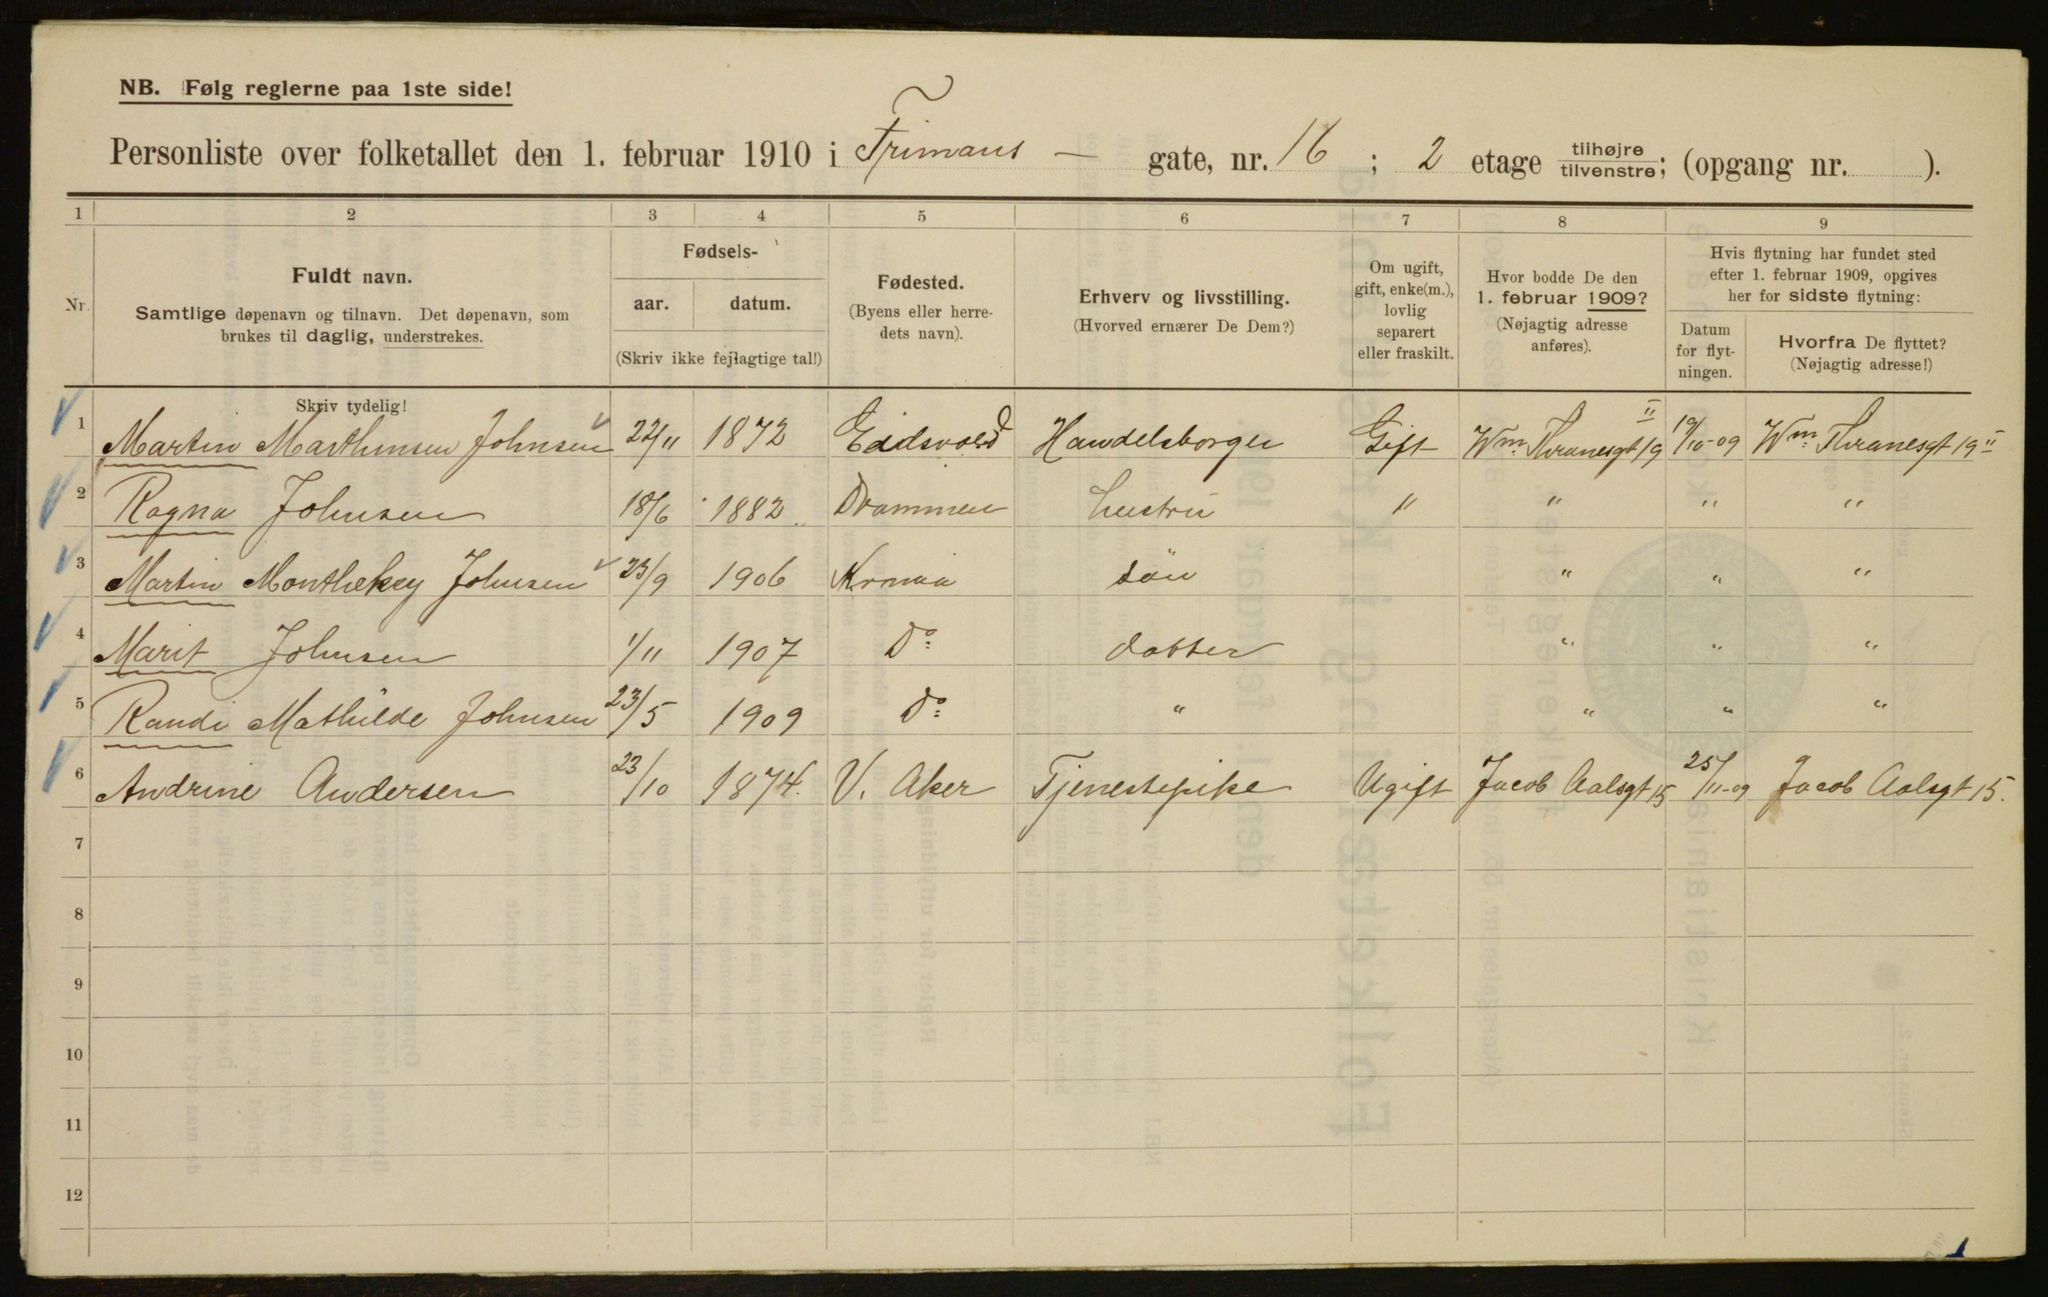 NB. Følg reglerne paa 1ste side!
Personliste over folketallet den 1. februar 1910 i Frimans — gate, nr. 16 ; 2 etage tilhøjre tilvenstre; (opgang nr. ).
1 2 3 4 5 6 7 8 9
Nr.
Fuldt navn.
Samtlige døpenavn og tilnavn. Det døpenavn, som
brukes til daglig, understrekes.
Skriv tydelig!
Fødsels-
aar. datum.
(Skriv ikke fejlagtige tal!)
Fødested.
(Byens eller herre-
dets navn).
Erhverv og livsstilling.
(Hvorved ernærer De Dem?)
Om ugift,
gift, enke(m.),
lovlig
separert
eller fraskilt.
Hvor bodde De den
1. februar 1909?
(Nøjagtig adresse
anføres).
Hvis flytning har fundet sted
efter 1. februar 1909, opgives
her for sidste flytning:
Datum
for flyt-
ningen.
Hvorfra De flyttet?
(Nøjagtig adresse!)
1 Martin Marthinsen Johnsen 22/11 1872 Eidsvold Handelsborger Gift Wm. Thranesgt 19 II 19/10-09 Wm. Thranesgt 19 II
2 Ragna Johnsen 18/6 1882 Drammen hustru " " " "
3 Martin Johnsen 23/9 1906 Krania sön " " "
4 Marit Johnsen 1/11 1907 Do datter " " "
5 Randi Mathilde Johnsen 23/5 1909 Do " " " "
6 Andrine Andersen 23/10 1874. V. Aker Tjenestepike Ugift Jacob Aalsgt 15 25/11-09 Jacob Aalsgt 15.
7
8
9
10
11
12